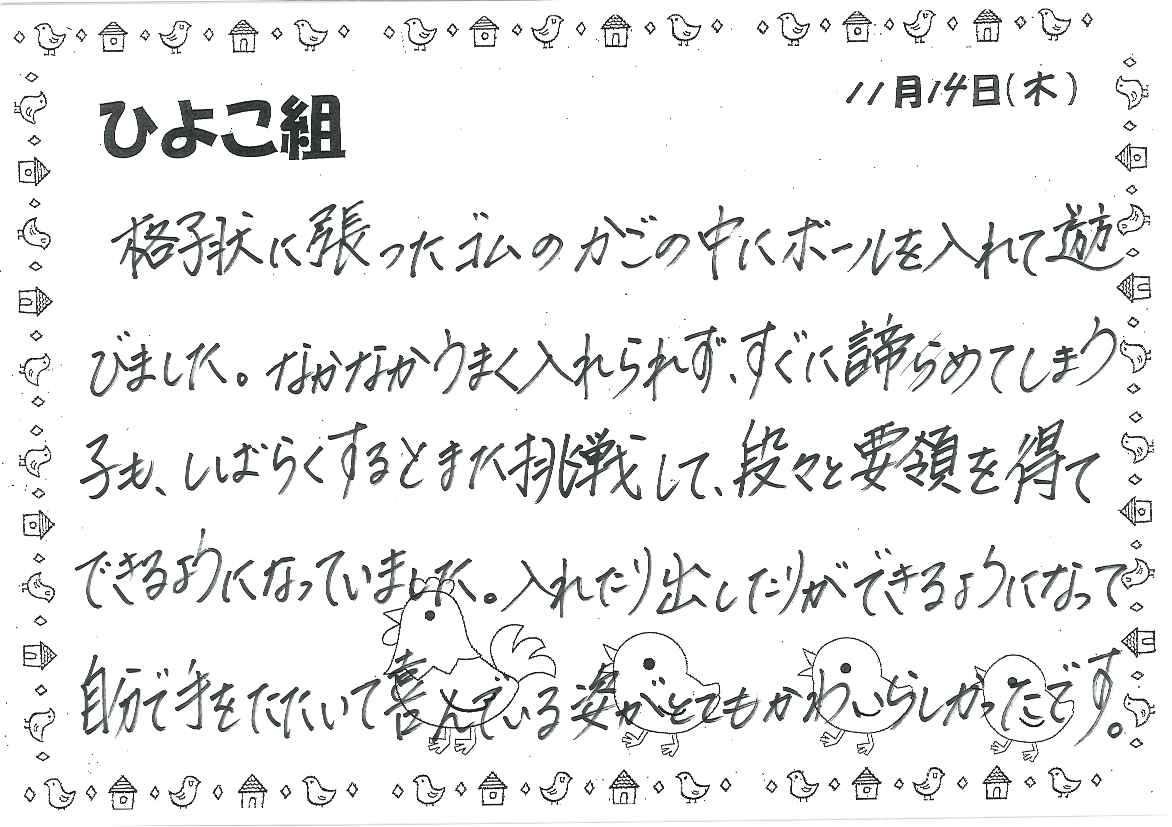 11月14日(木)
ひよこ組
格子状に張ったゴムのかごの中にボールを入れて遊
びました。なかなかうまく入れられず、すぐに諦らめてしまう
子も、しばらくするとまた挑戦して、段々と要領を得て
できるようになっていました。入れたり出したりができるようになって
自分で手をたたいて喜んでいる姿がとてもかわいらしかったです。